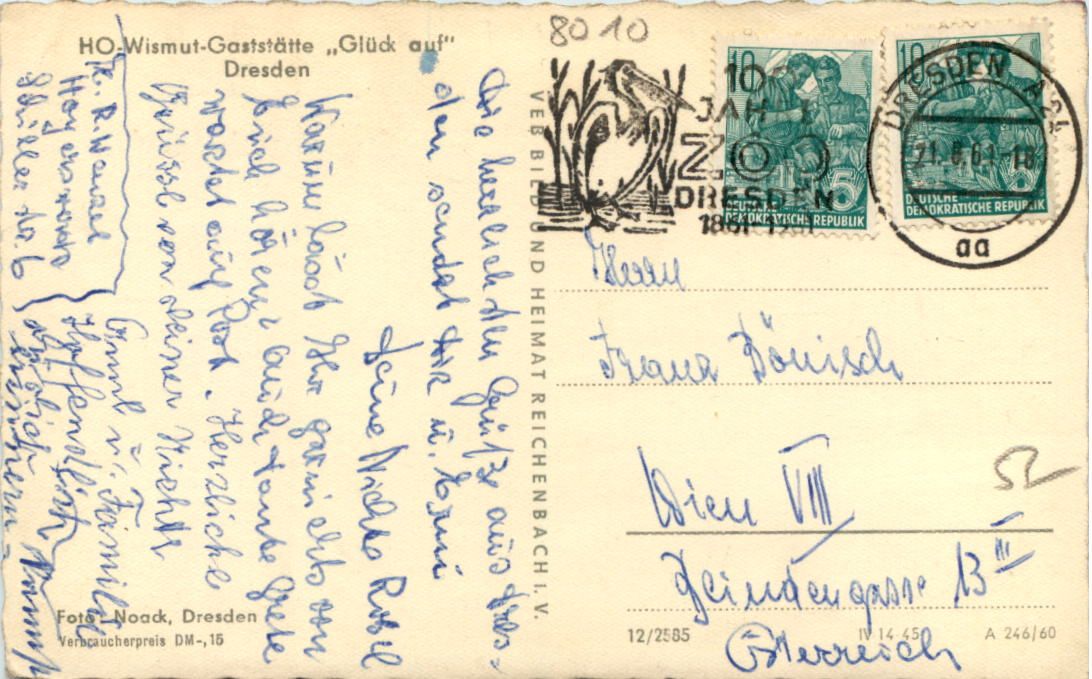 HO-Wismut-Gaststätte „Glück auf“
Dresden
8010
10
JAHRE
ZOO
DRESDEN
1861-1961
DRESDEN A 21
21.8.61-18
aa
10
5
DEUTSCHE
DEMOKRATISCHE REPUBLIK
10
5
DEUTSCHE
DEMOKRATISCHE REPUBLIK
Die herzlichsten Grüße aus Dres-
den sendet Dir u. Erni
Deine Nichte Rosel
Warum lässt Ihr garnichts von
Euch hören? auch Tante Grete
wartet auf Post. Herzliche
Grüsse von Deiner Nichte
Annl u. Familie
R. Wenzel
Hoyerswerda
Str. 6
Hoffendlich kannst
Dich
erinnern.
VEB BILD UND HEIMAT REICHENBACH I. V.
Herrn
Franz Bönisch
Wien VIII
gasse 13 III
Österreich
Foto: Noack, Dresden
Verbraucherpreis DM -,15
12/2585
IV 14-45
A 246/60